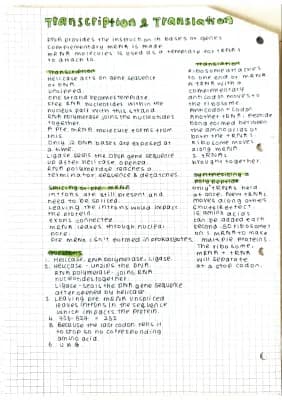 Transcription & Translation
DNA provides the instruction in bases or genes
complementary mRNA is made
mRNA molecules is used as a template for tRNAs
to attach to.
Transcription
Helicase acts on gene sequence
of DNA
unwinds
one strand becomes template
free RNA nucleotides within the
nucleus pair with this strand
RNA polymerase joins the nucleotides
together
A pre mRNA molecule forms from
this.
Only 12 RNA bases are exposed at
a time.
Ligase seals the DNA gene sequence
up after helicase opened.
RNA polymerase reaches a
terminator sequence & detaches.
Splicing of pre mRNA
introns are still present and
need to be spliced.
Leaving the introns would impact
the protein
exons connected
mRNA leaves through nuclear
pore.
pre mRNA isn't formed in prokaryotes.
Translation
Ribosome attaches
to one end of mRNA
A tRNA with a
complimentary
anticodon moves to
the ribosome
Anticodon - codon
Another tRNA, peptide
bond formed between
the amino acids of
both the tRNAs.
Ribosome moves
along mRNA
2 tRNAs
brought together.
Synthesising a
polypeptide
Only 2 tRNAs held
at once. Next tRNAs
moves along others
15 amino acids
can be added each
second. 50 ribosomes
on 1 mRNA to make
multiple proteins.
The ribosome,
mRNA + tRNA
will separate
at a stop codon.
1. Helicase, RNA polymerase, ligase.
2. Helicase - unzips the DNA
RNA polymerase - joins RNA
nucleotides together
Ligase - seals the DNA gene sequence
after opened by helicase
3. Leaving pre mRNA unspliced
leaves introns in the sequence
which impacts the protein.
5. Because the last codon tells it
to stop so no corresponding
amino acid.